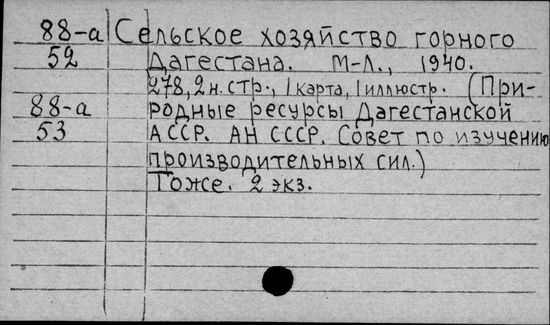 88-а Сельское хозяйство горного
52 Дагестана. М-Л., 1940.
278, 2 н. стр., 1 карта, 1 иллюстр. (При-
88-а родные ресурсы Дагестанской
53 АССР. АН СССР. Совет по изучению
производительных сил.)
Тоже. 2 экз.